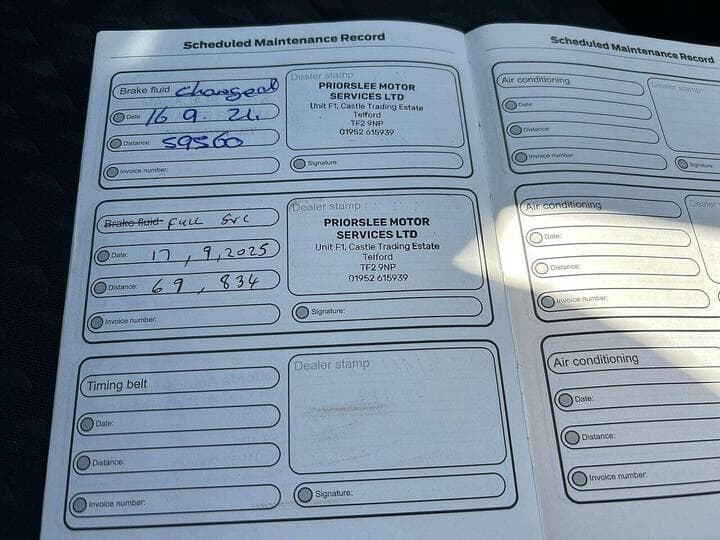 Scheduled Maintenance Record
Brake fluid changed
Date: 16 9. 21.
Distance: 59560
Invoice number:
Dealer stamp
PRIORSLEE MOTOR
SERVICES LTD
Unit F1, Castle Trading Estate
Telford
TF2 9NP
01952 615939
Signature:
Brake fluid Full Svc
Date: 17, 9, 2025
Distance: 69, 834
Invoice number:
Dealer stamp
PRIORSLEE MOTOR
SERVICES LTD
Unit F1, Castle Trading Estate
Telford
TF2 9NP
01952 615939
Signature:
Timing belt
Date:
Distance:
Invoice number:
Dealer stamp
Signature:
Scheduled Maintenance Record
Air conditioning
Date:
Distance:
Invoice number:
Dealer stamp
Signature:
Air conditioning
Date:
Distance:
Invoice number:
Dealer
Air conditioning
Date:
Distance:
Invoice number: